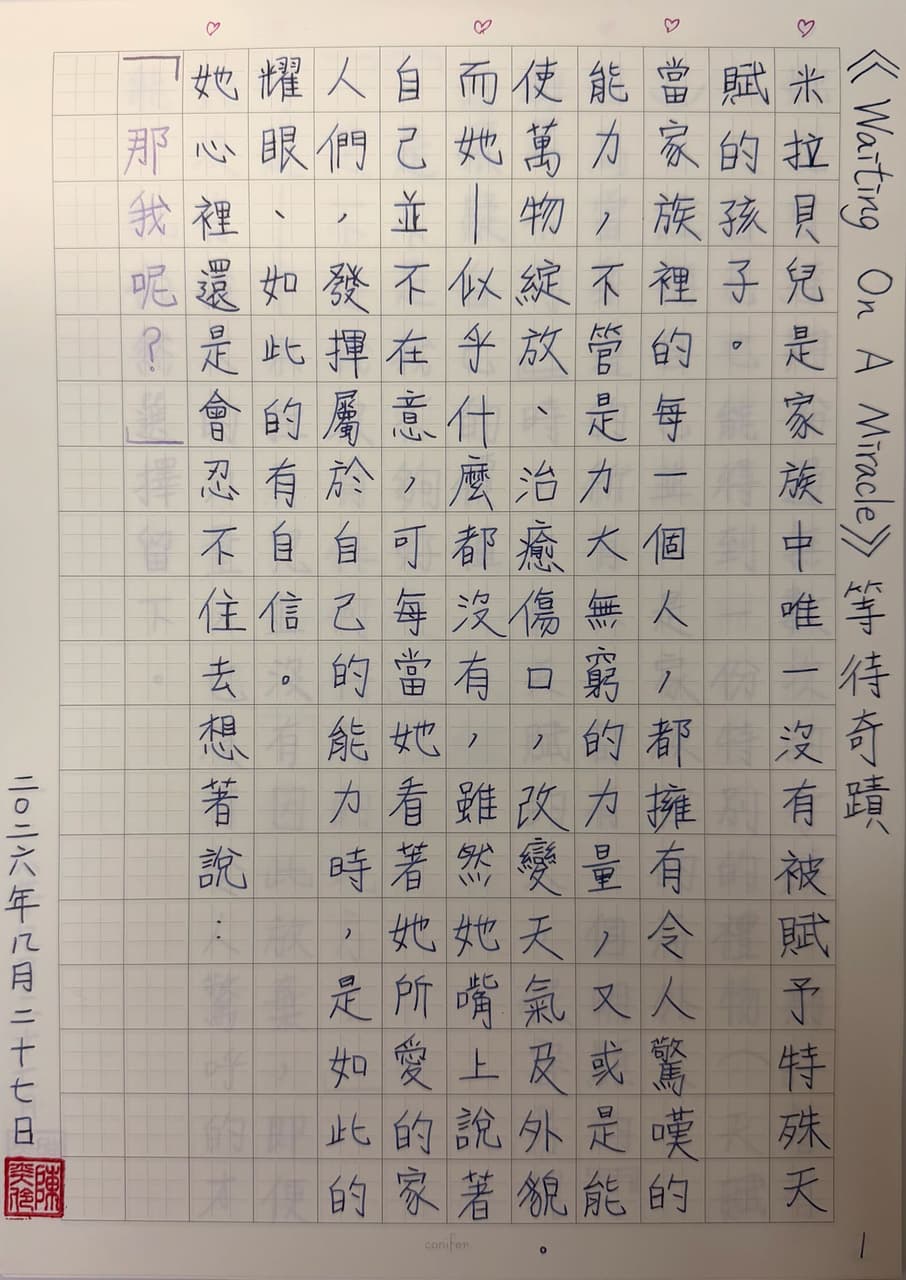 《Waiting On A Miracle》等待奇蹟
米拉貝兒是家族中唯一沒有被賦予特殊天
賦的孩子。
當家族裡的每一個人，都擁有令人驚嘆的
能力，不管是力大無窮的力量，又或是能
使萬物綻放、治癒傷口，改變天氣及外貌。
而她｜似乎什麼都沒有，雖然她嘴上說著
自己並不在意，可每當她看著她所愛的家
人們，發揮屬於自己的能力時，是如此的
耀眼、如此的有自信。
她心裡還是會忍不住去想著說：
「那我呢？」
二〇二六年八月二十七日
conifer
1